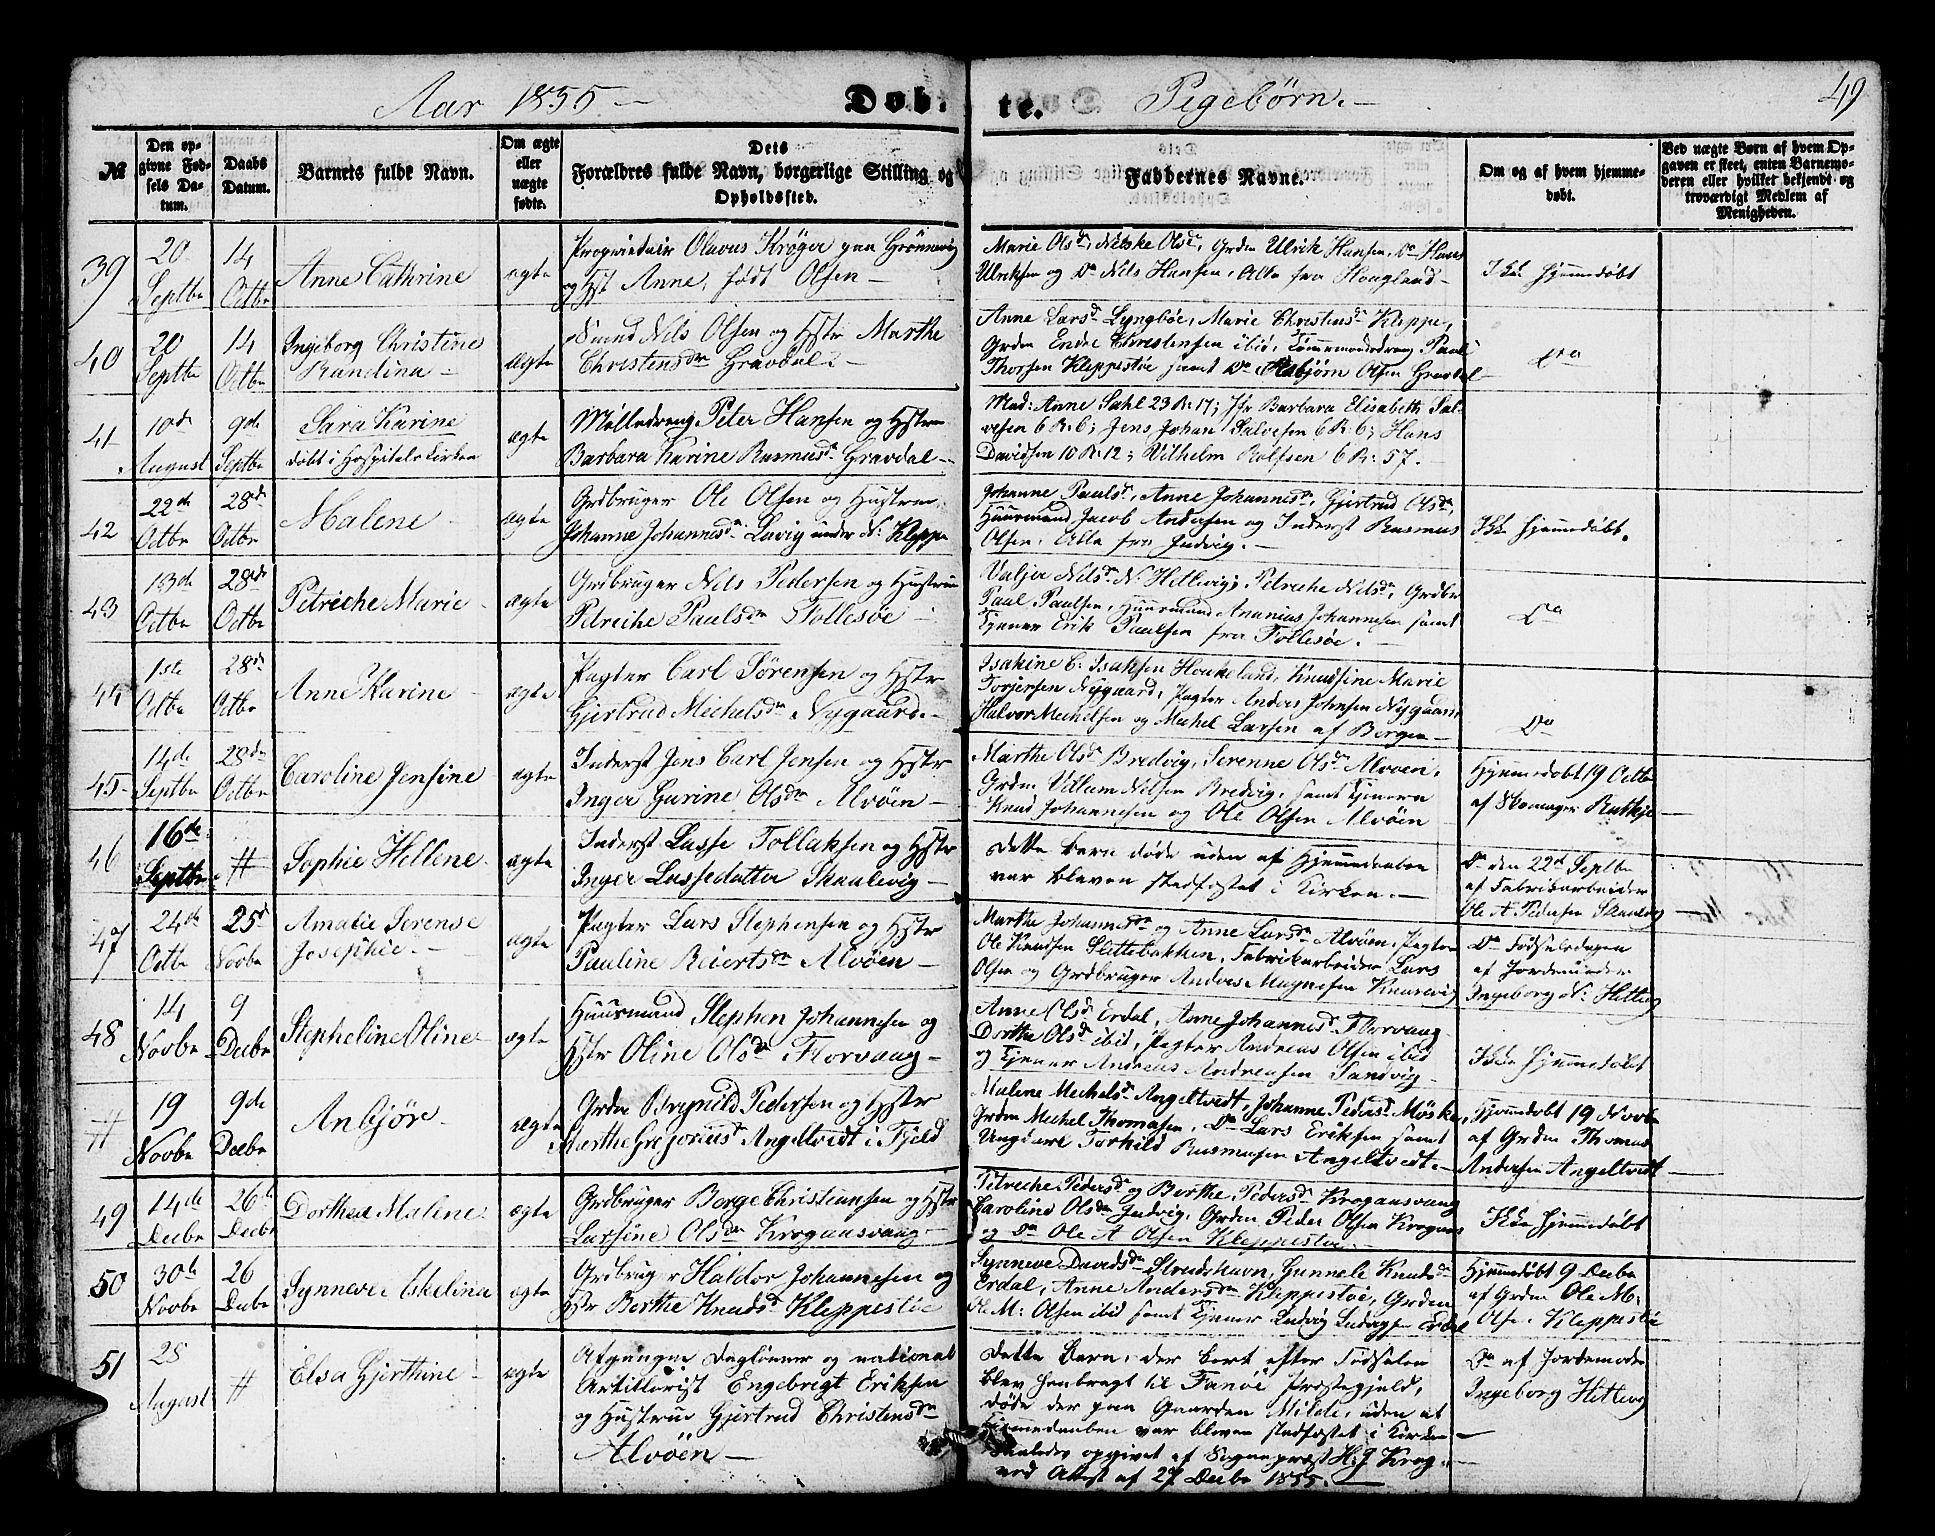 Aar 1855 Døb- te. Pigebørn. 49
№
Den opgivne Fødsels Datum.
Daabs Datum.
Barnets fulde Navn.
Om ægte eller uægte fødte.
Dets Forældres fulde Navn, borgerlige Stilling og Opholdssted.
Faddernes Navne.
Om og af hvem hjemmedøbt.
Ved uægte Børn af hvem Opgaven er skeet, enten Barnemoderen eller hvilket bekjendt og troværdigt Medlem af Menigheden.
39
20 Septbr
14 Octbr
Anne Cathrine
ægte
Proprietair Olavus Krøger paa Grønnevig
og Hst Anne, født Olsen
Marie Olsd, Nilske Olsd, Grdm Ulrik Hansen, Do Hans
Ulriksen og Do Nils Hansen, Alle fra Hougland
Ikke hjemmedøbt
40
20 Septbr
14 Octbr
Ingeborg Christine
Randina
ægte
Nils Olsen og Hstr Marthe
Christensdr Gravdal
Anne Larsd Lyngbøe, Marie Christensd Kleppe,
Grdm Endre Christensen ibid, Tømmermandsdreng Paul
Thorsen Kleppestøe samt Do Asbjørn Olsen Gravdal
Do
41
10de August
9de Septbr
Sara Karine
døbt i Hospitals Kirken
ægte
Mølledreng Peter Hansen og Hstru
Barbara Karine Rasmusd Gravdal
Mad: Anne Dahl 23 R: 17; Jfr Barbara Elisabeth Sal-
vesen 6 R: 6; Jens Johan Salvesen 6 R: 6; Hans
Davidsen 10 R: 12; Vilhelm Rolfsen 6 R: 57.
42
22de Octbr
28de Octbr
Malene
ægte
Grdbruger Ole Olsen og Hustrue
Johanne Johannesdr Lavig under N: Kleppe
Johanne Paulsd, Anne Johannesd, Gjertrud Olsd,
Huusmand Jacob Andersen og Inderst Rasmus
Olsen, Alle fra Judvig.
Ikke hjemmedøbt.
43
13de Octbr
28de Octbr
Petriche Marie
ægte
Grdbruger Nils Pedersen og Hustrue
Petriche Paulsdr Follesøe
Valjer Nilsd N: Hetlevig; Petriche Nilsd, Grdbr
Paul Paulsen, Huusmand Ananias Johannesen samt
Tjener Erik Paulsen fra Follesøe.
Do
44
1ste Octbr
28de Octbr
Anne Karine
ægte
Pagter Carl Sørensen og Hstr
Gjertrud Michelsdr Nygaard.
Isakine C. Isaksen Houkeland, Knudsine Marie
Torjersen Nygaard, Pagter Anders Johnsen Nygaard,
Halvor Michelsen og Michel Larsen af Bergen
Do
45
14de Septbr
28de Octbr
Caroline Jensine
ægte
Inderst Jens Carl Jensen og Hstr
Inger Gurine Olsdr Alvøen
Marthe Olsd Bredvig, Serenne Olsd Alvøen,
Grdm Villum Nilsen Bredvig, samt Tjenere
Knud Johannesen og Ole Olsen Alvøen
Hjemmedøbt 19 Octbr
af Skomager Rutkje
46
16de Septbr
#
Sophie Hellene
ægte
Inderst Lasse Tollaksen og Hstr
Inger Lassedatter Skaalevig
Dette Barn døde uden at Hjemmedaaben
var bleven stadfæstet i Kirken.
Do den 22de Septbr
af Fabrikarbeider
Ole A Pedersen Skaalevig
47
24de Octbr
25d Novbr
Amalie Serense
Josephie.
ægte
Pagter Lars Stephensen og Hstr
Pauline Reiertsdr Alvøen
Marthe Johannesdr og Anne Larsdr Alvøen, Pagter
Ole Knudsen Slettebakken, Fabrikarbeider Lars
Olsen og Grdbruger Anders Magnesen Knarrevig
Do Fødselsdagen
af Jordemoder
Ingeborg N: Hetlevig
48
14 Novbr
9 Decbr
Stepheline Oline
ægte
Huusmand Stephen Johannesen og
Hstr Oline Olsdr Florvaag
Anne Olsd Erdal, Anne Johannesd Florvaag
Dorthe Olsd ibid, Pagter Andreas Olsen ibid
og Tjener Andreas Andreasen Sandvig
Ikke hjemmedøbt
#
19 Novbr
9de Decbr
Anbjøre
ægte
Grdm Brynild Pedersen og Hstr
Marthe Gregoriusd Angeltvedt i Fjeld
Malene Michelsd Angeltvedt, Johanne Pedersd Møske,
Grdm Michel Thomasen, Do Lars Eriksen samt
Ungkarl Torkild Rasmusen Angeltvedt.
Hjemmedøbt 19 Novbr
af Grdm Thomas
Andersen Angeltvedt
49
14de Decbr
26 Decbr
Dorthea Malene
ægte
Grdbruger Børge Christiansen og Hstr
Larsine Olsdr Krogaasvaag
Petriche Pedersd og Berthe Pedersd Krogaasvaag
Caroline Olsdr Judvig, Grdm Peder Olsen Krogaas
og Do Ole A Olsen Kleppestøe
Ikke hjemmedøbt
50
30te Novbr
26 Decbr
Synneve Askelina
ægte
Grdbruger Haldor Johannesen og
Hstr Berthe Knudsd Kleppestøe
Synneve Davidsdr Strudshavn, Gunnele Knudsdr
Erdal, Anne Andersdr Kleppestøe, Grdm
Ole M: Olsen ibid samt Tjener Ludvig Ludvigsen Erdal
Hjemmedøbt 9 Decbr
af Grdm Ole M:
Olsen Kleppestøe
51
28 August
#
Elsa Gjerthine
ægte
Afgangne Dagløner og national
Artillerist Engebrigt Eriksen
og Hustrue Gjertrud Christensdr
Alvøen
Dette Barn, der bort efter Fødselen
blev henbragt til Fanøe Præstegjeld,
døde der paa Gaarden Milde, uden at
Hjemmedaaben var bleven stadfæstet i Kirken
Saaledes opgivet af Sognepræst H. J Krog
ved Attest af 27 Decbr 1855.
Do af Jordemoder
Ingeborg Hetlevig